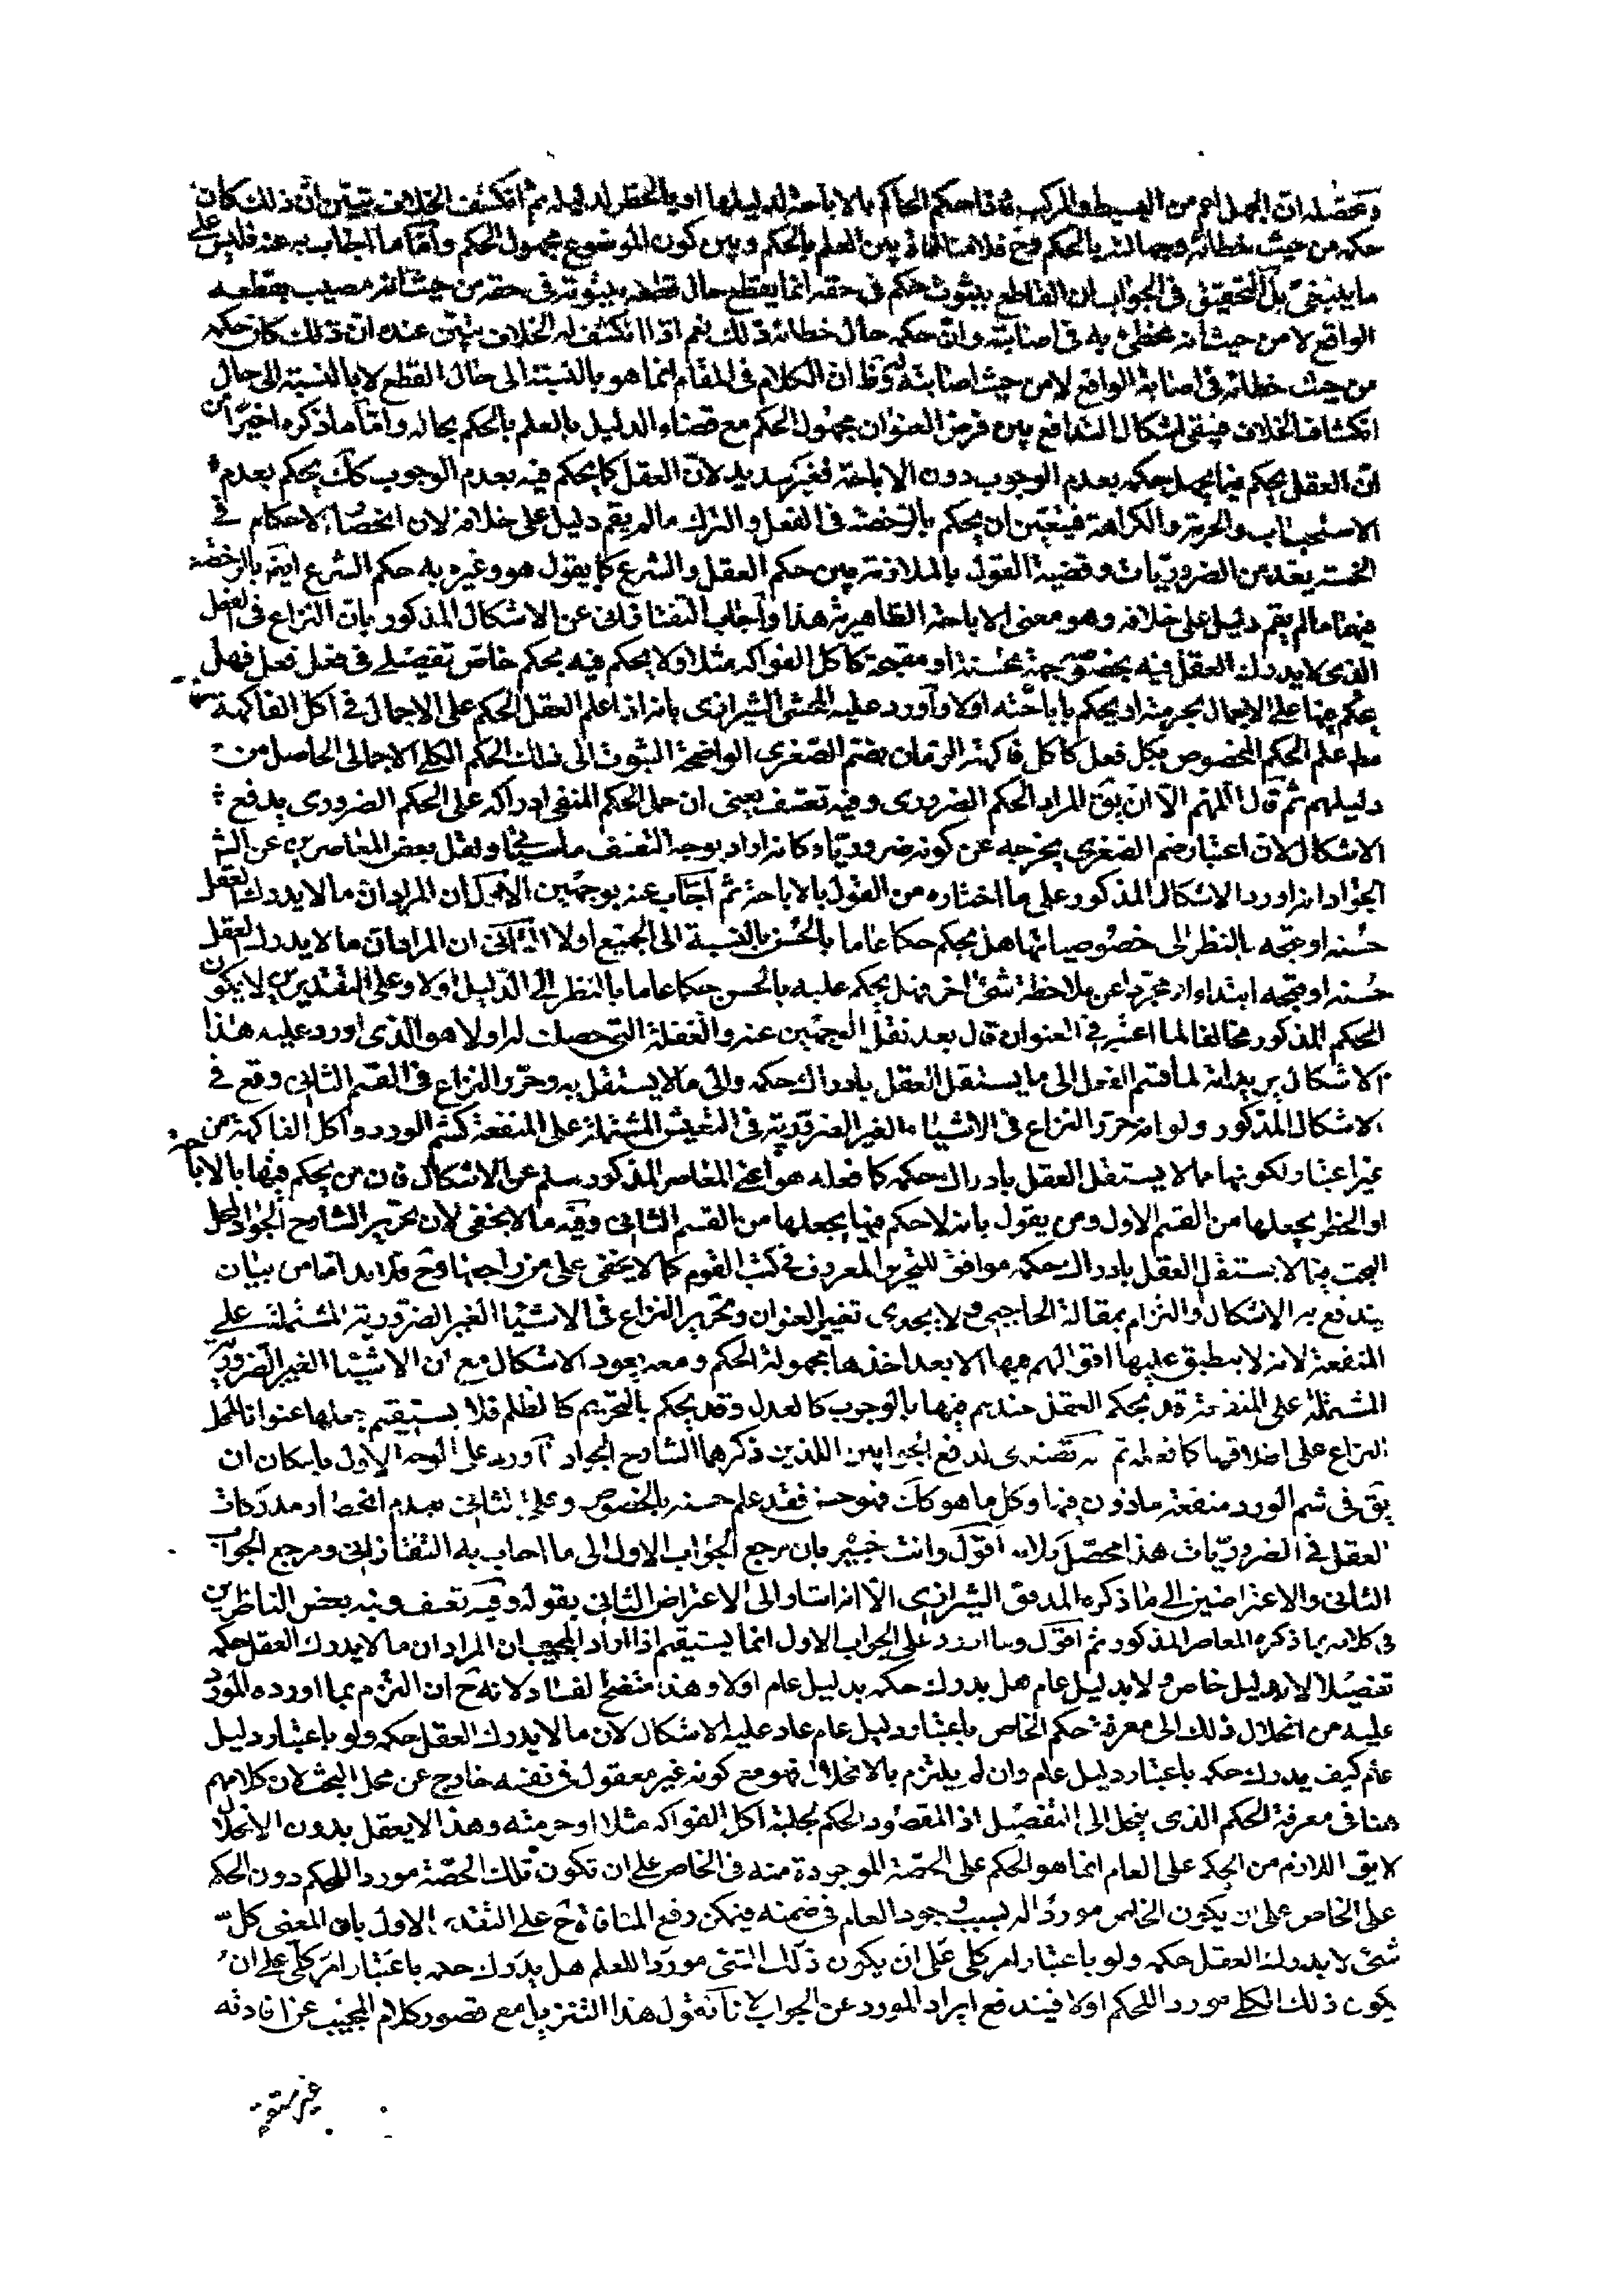 ومحصّله ان الجهل اعم من البسيط والمركب فاذا حكم الحاكم بالاباحة لدليلها او بالحظر لدليله ثم انكشف الخلاف تبيّن انّ ذلك كان
حكمه من حيث خطائه وجهالته بالحكم وح فلا منافاة بين العلم بالحكم وبين كون الموضوع مجهول الحكم وامّا ما اجاب به عنه فليس على
ما ينبغى بل التحقيق فى الجواب ان القاطع بثبوت حكم فى حقه انما يقطع حال قطعه بثبوته فى حقه من حيث انه مصيب بقطعه
الواقع لا من حيث انه مخطئ به فى اصابته وانّ حكمه حال خطائه ذلك نعم اذا انكشف له الخلاف تبيّن عنده انّ ذلك كان حكمه
من حيث خطائه فى اصابة الواقع لا من حيث اصابته له وظ ان الكلام فى المقام انما هو بالنسبة الى حال القطع لا بالنسبة الى حال
انكشاف الخلاف فيبقى اشكال التدافع بين فرض العنوان مجهول الحكم مع قضاء الدليل بالعلم بالحكم بحاله وامّا ما ذكره اخيرًا من
انّ العقل يحكم فيما يجهل حكمه بعدم الوجوب دون الاباحة فغير سديد لانّ العقل كما يحكم فيه بعدم الوجوب كك يحكم بعدم
الاستحباب والحرمة والكراهة فيتعيّن ان يحكم بالرخصة فى الفعل والترك ما لم يقم دليل على خلافه لان انحصار الاحكام فى
الخمسة يعد من الضروريّات وقضية القول بالملازمة بين حكم العقل والشرع كما يقول هو وغيره به حكم الشرع ايضا بالرخصة
فيهما ما لم يقم دليل على خلافه وهو معنى الاباحة الظاهرية هذا واجاب التفتازانى عن الاشكال المذكور بان النزاع فى الفعل
الذى لا يدرك العقل فيه بخصوصه جهة محسنة او مقبحة كاكل الفواكه مثلا ولا يحكم فيه بحكم خاصّ تفصيلى فى فعل فعل فهل
يحكم فيها على الاجمال بحرمته او يحكم باباحته اولا واورد عليه المحشى الشيرازى بانه اذا علم العقل الحكم على الاجمال فى اكل الفاكهة
علم الحكم المخصوص بكل فعل كاكل فاكهة الرمان بضم الصّغرى الواضحة الثبوت الى ذلك الحكم الكلى الاجمالى الحاصل من
دليلهم ثم قال اللهم الا ان يق المراد الحكم الضرورى وفيه تعسف يعنى ان حمل الحكم المنفى ادراكه على الحكم الضرورى يدفع
الاشكال لان اعتبار ضم الصّغرى يخرجه عن كونه ضروريّا وكانه اراد بوجه التعسف ما سيجئ ونقل بعض المعاصرين عن الش
الجواد انه اورد الاشكال المذكور على ما اختاره من القول بالاباحة ثم اجاب عنه بوجهين الاول ان المراد ان ما لا يدرك العقل
حسنه او قبحه بالنظر الى خصوصياتها هل يحكم حكما عاما بالحسن بالنسبة الى الجميع اولا الثانى ان المراد ان ما لا يدرك العقل
حسنه او قبحه ابتداء او مجرّدا عن ملاحظة شئ اخر فهل يحكم عليه بالحسن حكما عاما بالنظر الى الدّليل اولا وعلى التقديرين لا يكون
الحكم المذكور مخالفا لما اعتبر فى العنوان قال بعد نقل الوجهين عنه والغفلة التى حصلت له اولا هو الذى اورد عليه هذا
الاشكال يريد انه لما قسّم الفعل الى ما يستقل العقل بادراك حكمه والى ما لا يستقل به وحرّر النزاع فى القسم الثانى وقع فى
الاشكال المذكور ولو انه حرّر النزاع فى الاشياء الغير الضروريّة فى التعيّش المشتملة على المنفعة كشمّ الورد واكل الفاكهة من
غير اعتبار لكونها مما لا يستقل العقل بادراك حكمه كما فعله هو اعنى المعاصر المذكور سلم عن الاشكال فان من يحكم فيها بالاباحة
او الحظر يجعلها من القسم الاول ومن يقول بانه لا حكم فيها يجعلها من القسم الثانى وفيه ما لا يخفى لان تحرير الشارح الجواد لمحل
البحث فيما لا يستقل العقل بادراك حكمه موافق للتحرير المعروف فى كتب القوم كما لا يخفى على من راجعها وح فلا بد امّا من بيان
يندفع به الاشكال او التزام بمقالة الحاجبى ولا يجدى تغيير العنوان وتحرير النزاع فى الاشياء الغير الضروريّة المشتملة على
المنفعة لانه لا ينطبق عليها اقوالهم فيها الا بعد اخذها مجهولة الحكم ومعه يعود الاشكال مع ان الاشياء الغير الضروريّة
المشتملة على المنفعة قد يحكم العقل عندهم فيها بالوجوب كالعدل وقد يحكم بالتحريم كالظلم فلا يستقيم جعلها عنوانا لمحل
النزاع على اطلاقها كما فعله ثم تصدى لدفع الجوابين اللذين ذكرهما الشارح الجواد فاورد على الوجه الاول بامكان ان
يق فى شم الورد منفعة ماذون فيها وكل ما هو كك فهو حسن فقد علم حسنه بالخصوص وعلى الثانى بعدم انحصار مدركات
العقل فى الضروريّات هذا محصّل كلامه اقول وانت خبير بان مرجع الجواب الاول الى ما اجاب به التفتازانى ومرجع الجواب
الثانى والاعتراضين الى ما ذكره المدقق الشيرازى الا انه اشار الى الاعتراض الثانى بقوله وفيه تعسف ونبه بعض الناظرين
فى كلامه بما ذكره المعاصر المذكور ثم اقول وما اورد على الجواب الاول انما يستقيم اذا اراد المجيب ان المراد ان ما لا يدرك العقل حكمه
تفصيلا لا بدليل خاص ولا بدليل عام هل يدرك حكمه بدليل عام اولا وهذا متضح الفساد لانه ح ان التزم بما اورده المورد
عليه من انحلال ذلك الى معرفة حكم الخاص باعتبار دليل عام عاد عليه الاشكال لان ما لا يدرك العقل حكمه ولو باعتبار دليل
عام كيف يدرك حكمه باعتبار دليل عام وان لم يلتزم بالانحلال فهو مع كونه غير معقول فى نفسه خارج عن محل البحث لان كلامهم
هنا فى معرفة الحكم الذى ينحل الى التفصيل اذ المقصود الحكم بحلية اكل الفواكه مثلا او حرمته وهذا لا يعقل بدون الانحلال
لا يق اللازم من الحكم على العام انما هو الحكم على الحصّة الموجودة منه فى الخاص على ان تكون تلك الحصّة موردا للحكم دون الحكم
على الخاص على ان يكون الخاص موردا له بسبب وجود العام فى ضمنه فيمكن رفع المنافاة ح على التقدير الاول بان المعنى كلّ
شئ لا يدرك العقل حكمه ولو باعتبار امر كلى على ان يكون ذلك الشئ موردا للعلم هل يدرك حكمه باعتبار امر كلى على ان
يكون ذلك الكلى موردا للحكم اولا فيندفع ايراد المورد عن الجواب لانا نقول هذا التنزيل مع قصور كلام المجيب عن افادته
غير مستقيم